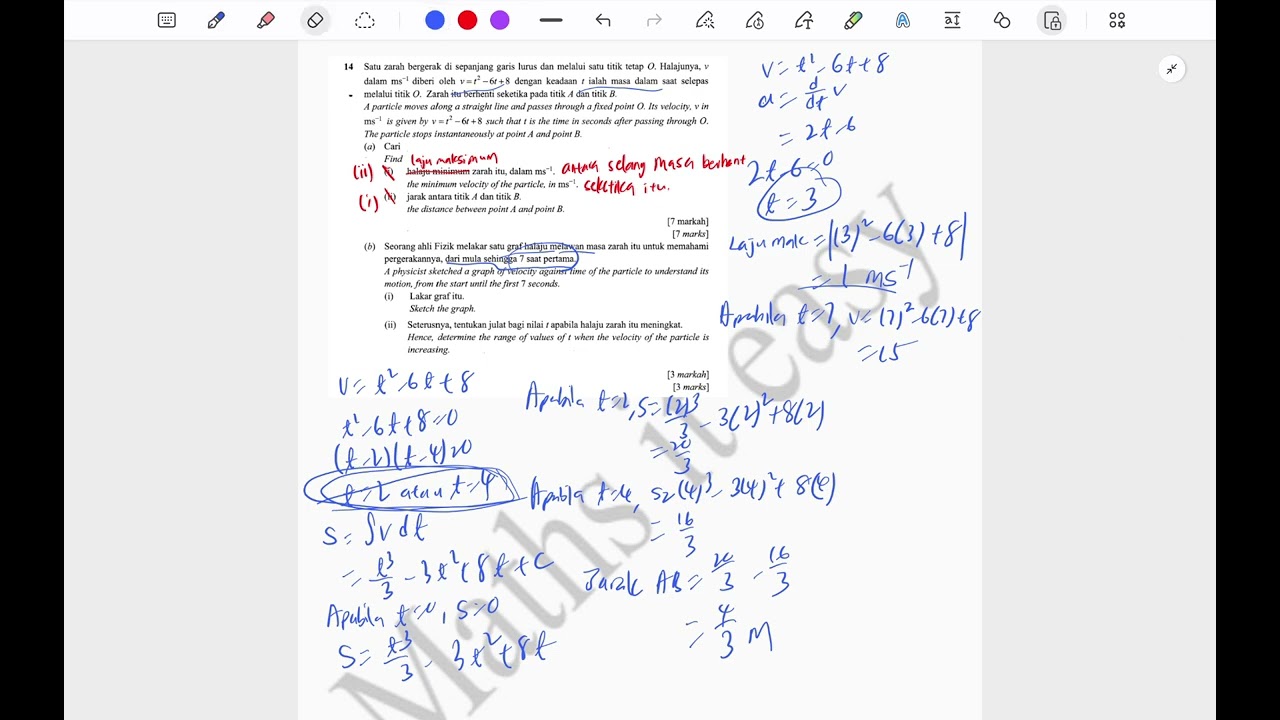 14 Satu zarah bergerak di sepanjang garis lurus dan melalui satu titik tetap O. Halajunya, v
dalam ms⁻¹ diberi oleh v = t² – 6t + 8 dengan keadaan t ialah masa dalam saat selepas
melalui titik O. Zarah itu berhenti seketika pada titik A dan titik B.
A particle moves along a straight line and passes through a fixed point O. Its velocity, v in
ms⁻¹ is given by v = t² – 6t + 8 such that t is the time in seconds after passing through O.
The particle stops instantaneously at point A and point B.
(a) Cari
Find
laju maksimum
(ii) (i) halaju minimum zarah itu, dalam ms⁻¹. antara selang masa berhent
the minimum velocity of the particle, in ms⁻¹. seketika itu.
(i) (ii) jarak antara titik A dan titik B.
the distance between point A and point B.
[7 markah]
[7 marks]
(b) Seorang ahli Fizik melakar satu graf halaju melawan masa zarah itu untuk memahami
pergerakannya, dari mula sehingga 7 saat pertama.
A physicist sketched a graph of velocity against time of the particle to understand its
motion, from the start until the first 7 seconds.
(i) Lakar graf itu.
Sketch the graph.
(ii) Seterusnya, tentukan julat bagi nilai t apabila halaju zarah itu meningkat.
Hence, determine the range of values of t when the velocity of the particle is
increasing.
[3 markah]
[3 marks]
v = t² - 6t + 8
t² - 6t + 8 = 0
(t - 2)(t - 4) = 0
t = 2 atau t = 4
S = ∫v dt
= t³/3 - 3t² + 8t + C
Apabila t = 0, S = 0
S = t³/3 - 3t² + 8t
Apabila t = 2, S = (2)³/3 - 3(2)² + 8(2)
= 20/3
Apabila t = 4, S = (4)³ - 3(4)² + 8(4)
= 16/3
Jarak AB = 20/3 - 16/3
= 4/3 m
v = t² - 6t + 8
a = d/dt v
= 2t - 6
2t - 6 = 0
t = 3
Laju mak = |(3)² - 6(3) + 8|
= 1 ms⁻¹
Apabila t = 7, v = (7)² - 6(7) + 8
= 15
Maths it easy